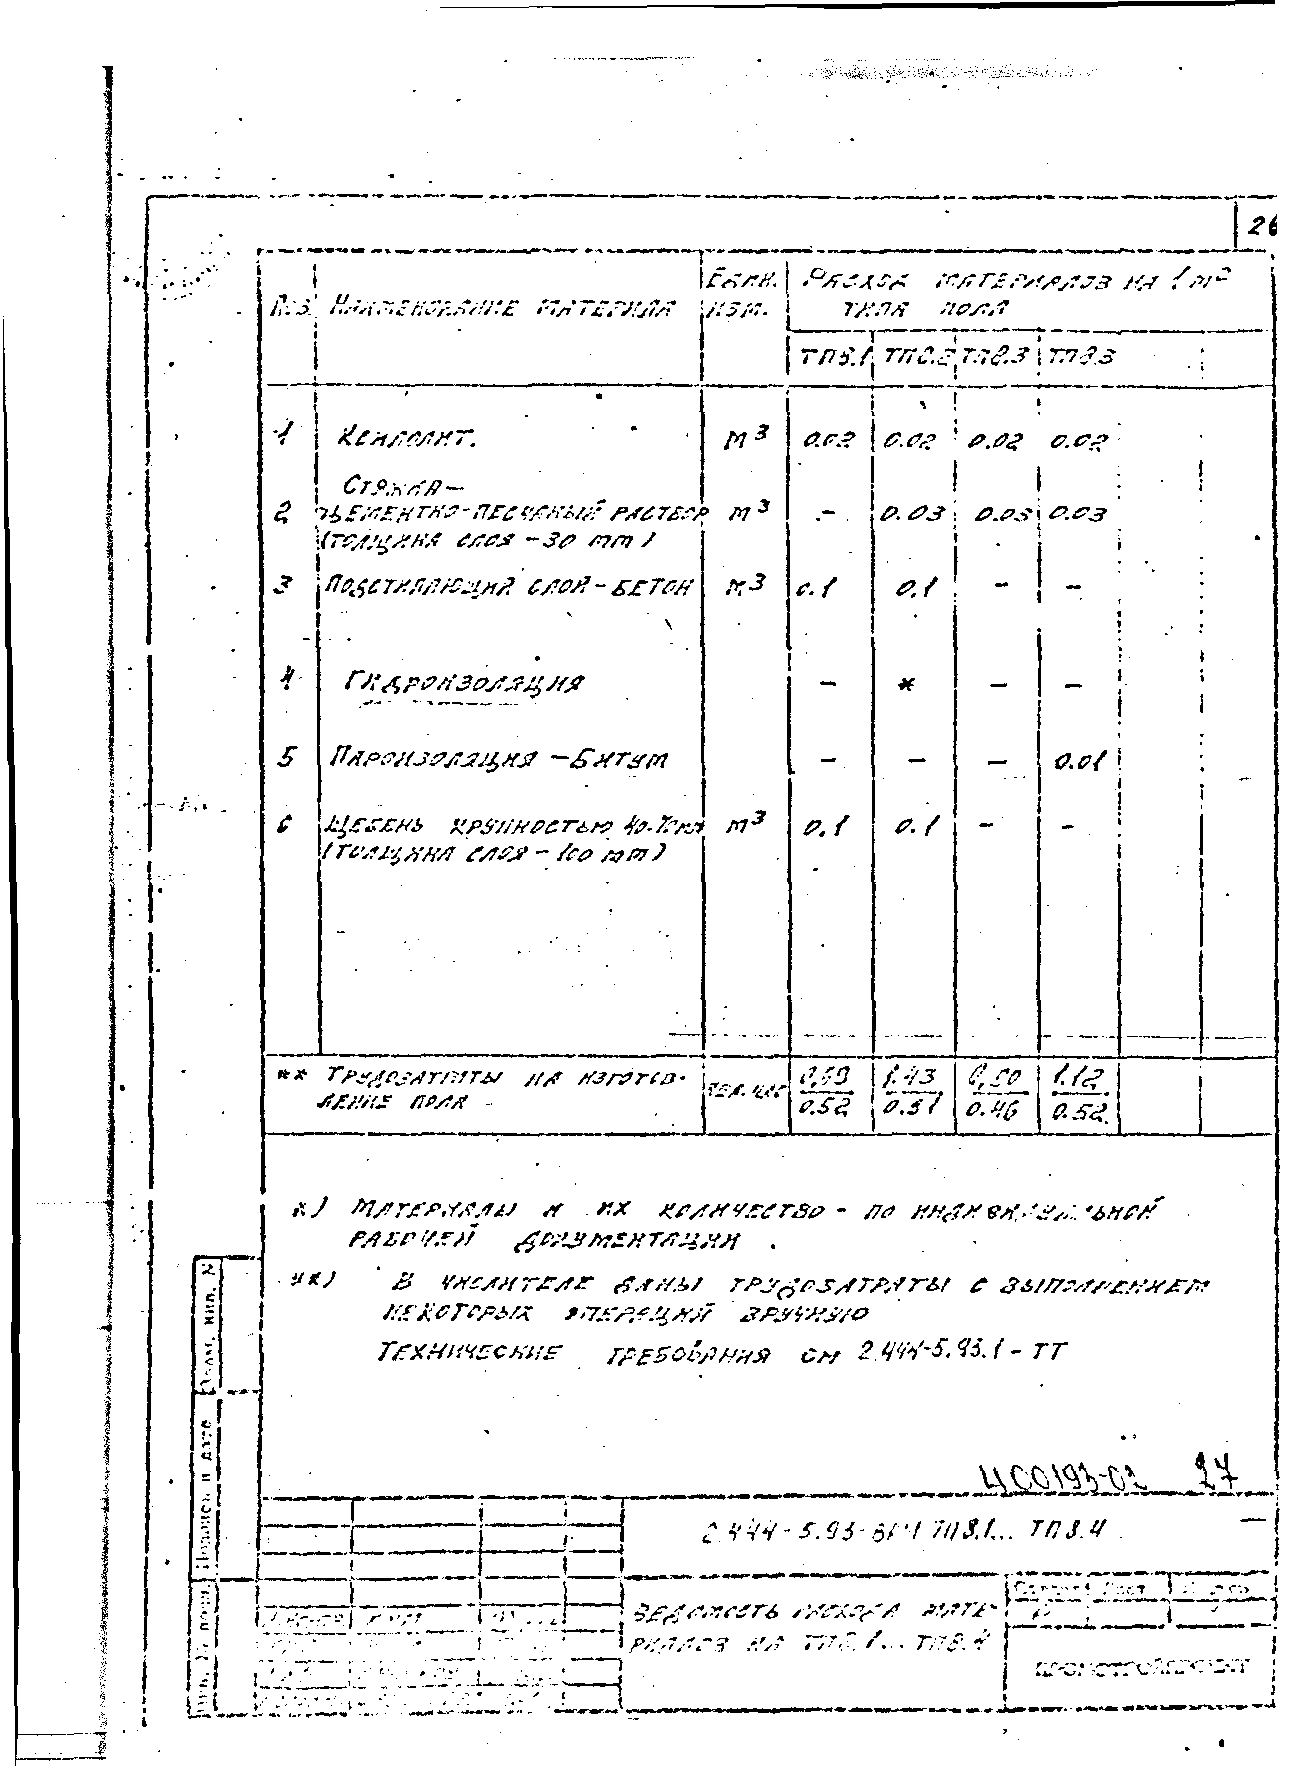 26
п.з. Наименование материала Един. изм. Расход материалов на 1 м2 типа пола
ТП8.1 ТП8.2 ТП8.3 ТП8.3
1 Ксилолит. м3 0.02 0.02 0.02 0.02
Стяжка–
2 цементно-песчаный раствор м3 – 0.03 0.03 0.03
(толщина слоя – 30 мм)
3 Подстилающий слой – бетон м3 0.1 0.1 – –
4 Гидроизоляция – * – –
5 Пароизоляция – битум – – – 0.01
6 Щебень крупностью м3 0.1 0.1 – –
(толщина слоя – 100 мм)
** Трудозатраты на изготов- чел. час 1.43 1.12
ление пола 0.52 0.51 0.46 0.52
*) Материалы и их количество – по индивидуальной
рабочей документации.
**) В числителе даны трудозатраты с выполнением
некоторых операций вручную
Технические требования см 2.444-5.93.1 – ТТ
Взам. инв. №
Подпись и дата
Инв. № подл.
ЦОО193-02 27
2.444-5.93-ВМ1 ТП8.1... ТП8.4
Ведомость расхода мате-
риалов на ТП8.1... ТП8.4
Стадия Лист Листов
Р 1
Промстройпроект